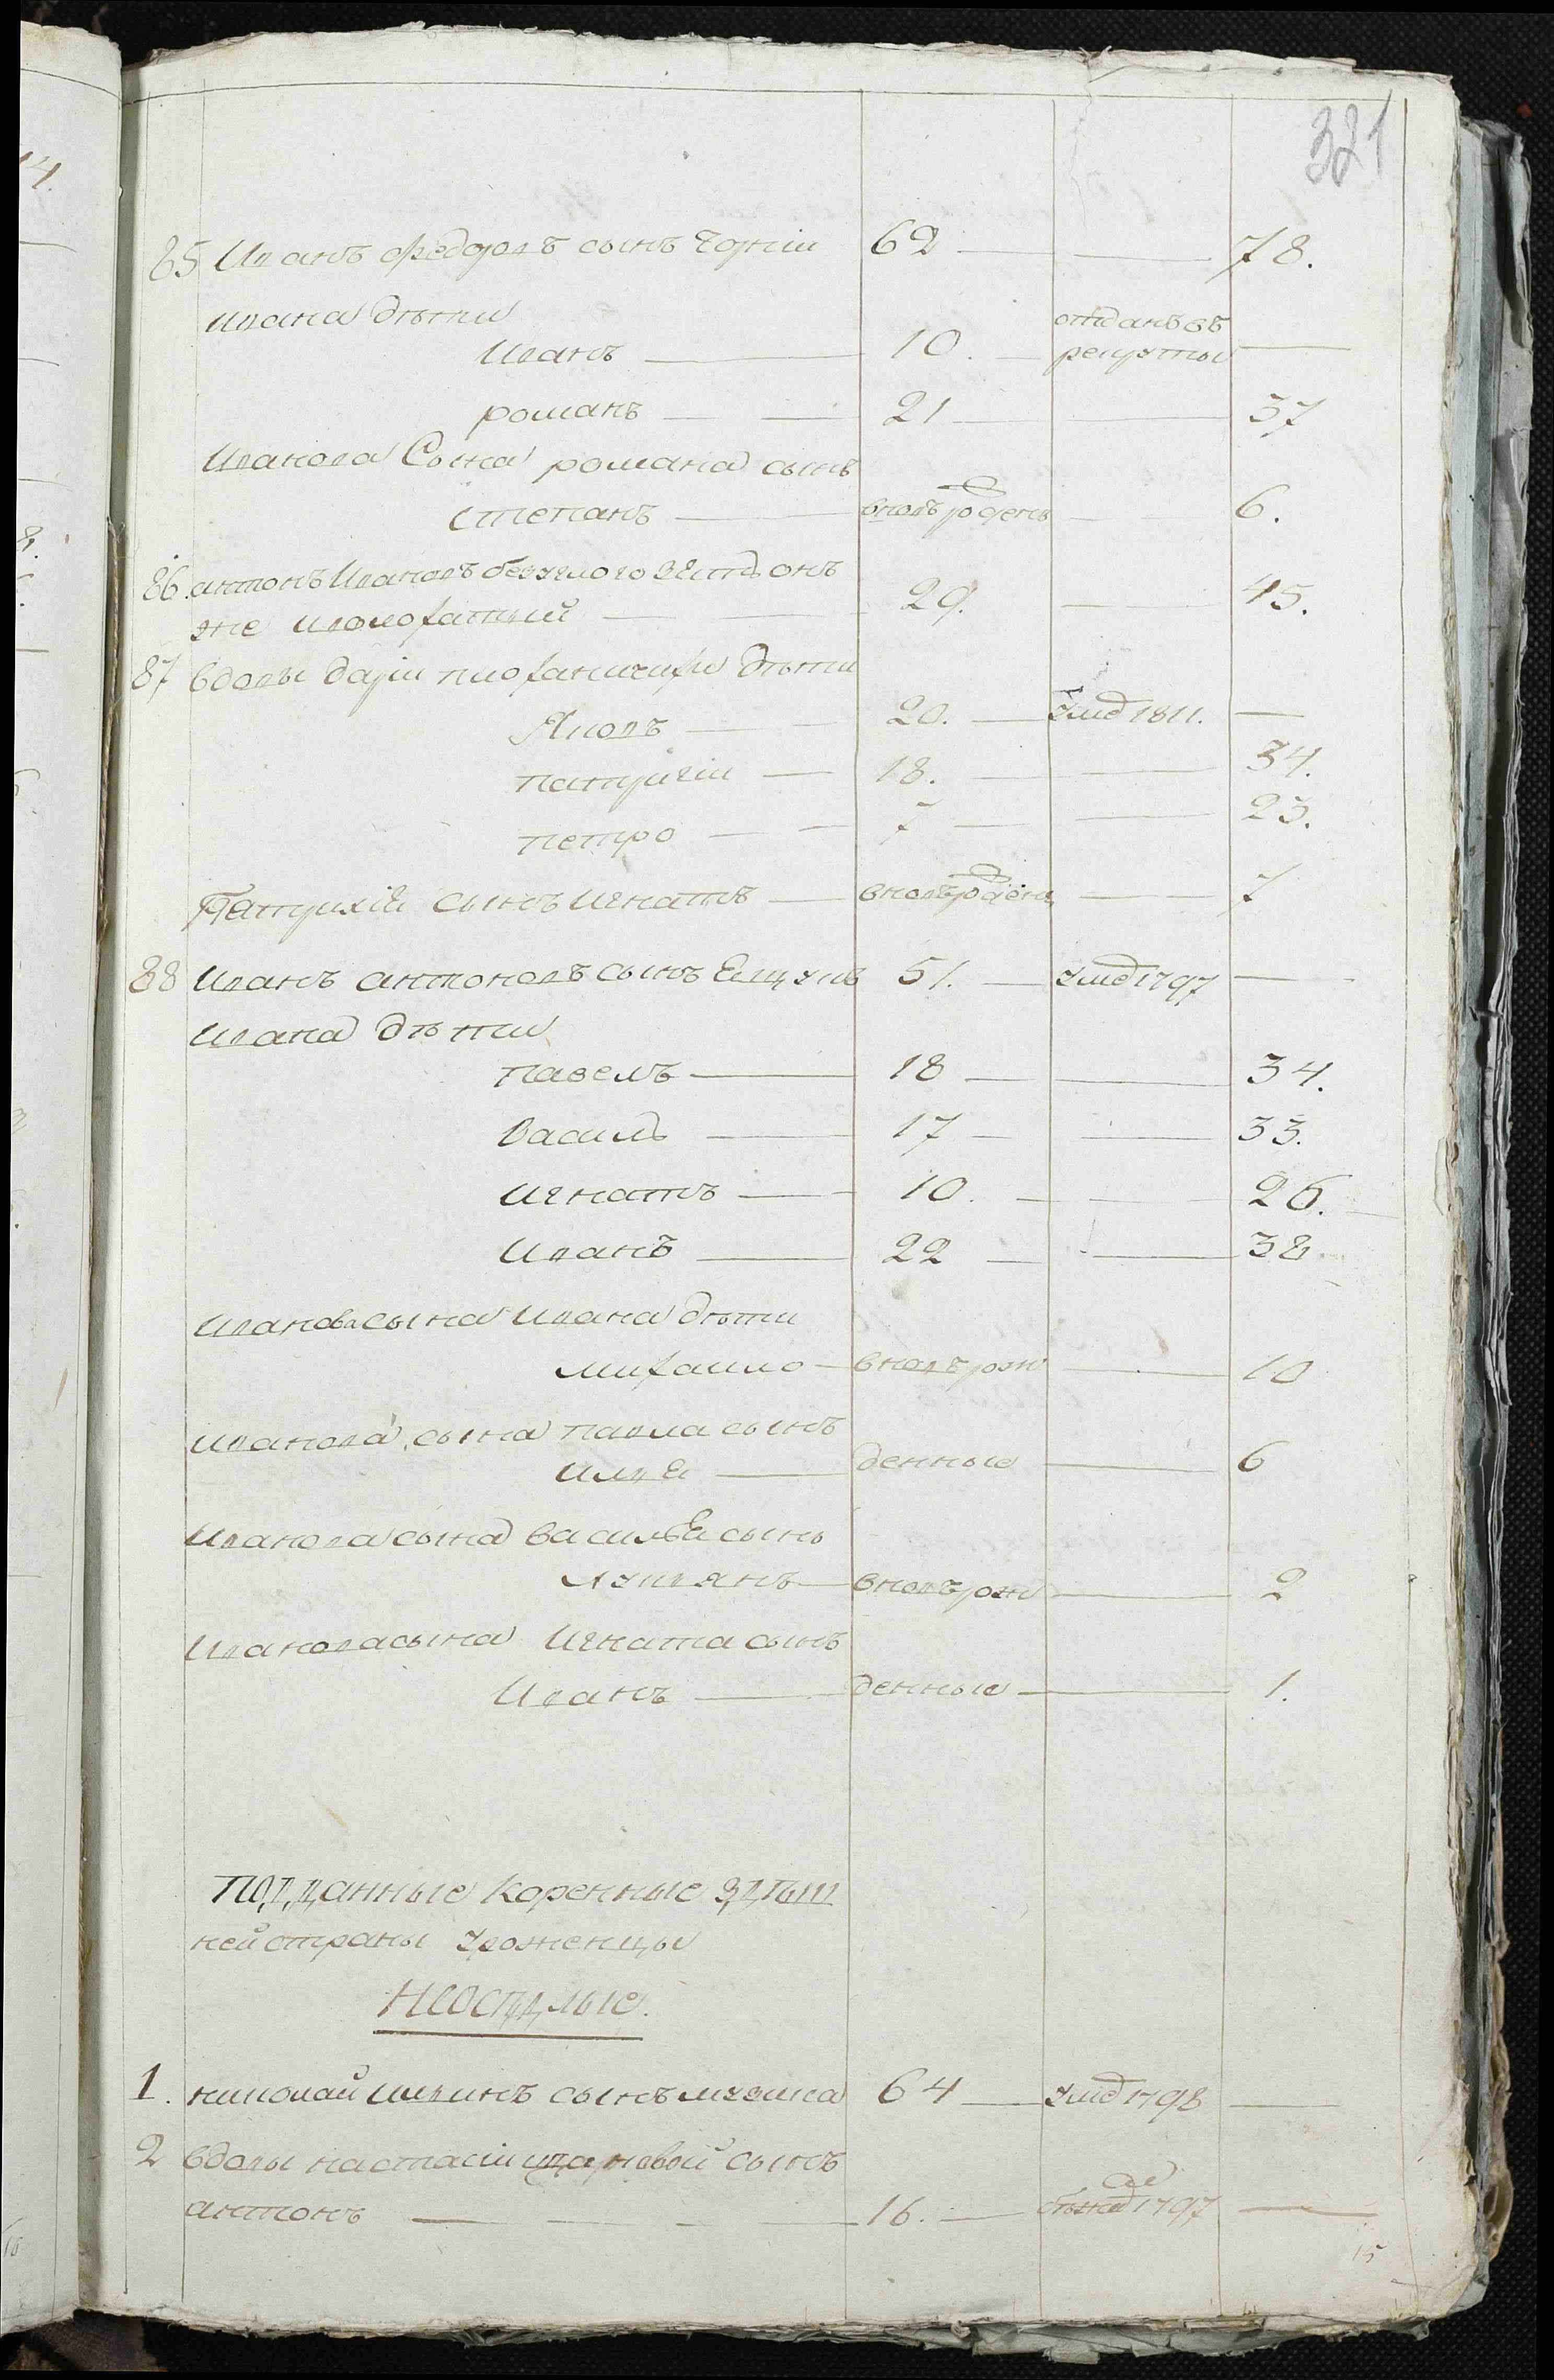 321
85 Иванъ Федоровъ сынъ Чорнiй 62 78.
Ивана дѣти
Иванъ 10. отданъ въ рекруты
романъ 21 37
Иванова Сына романа сынъ
степанъ вновь рожденъ 6.
86. антонъ Ивановъ онъ
же 29. 45.
87 вдовы дарiи дѣти
Яковъ 20. умер 1811.
патрикiй 18. 34.
петро 7 23.
Патрикiя сынъ игнатъ вновь рожденъ 7
88 Иванъ антоновъ сынъ 51. умер 1797
Ивана дѣти
павелъ 18 34.
Василь 17 33.
игнатъ 10. 26.
Иванъ 22 38
Иванова сына Ивана дѣти
михайло вновь рож 10
Иванова сына павла сынъ
илья денные 6
Иванова сына василья сынъ
лукьянъ вновь рож 2
Иванова сына игната сынъ
Иванъ денные 1.
Подданные коренные здѣш
ней страны уроженцы
Неосѣдлые.
1. николай сынъ 64 умер 1798
2 вдовы настасiи сынъ
антонъ 16. 1797
15